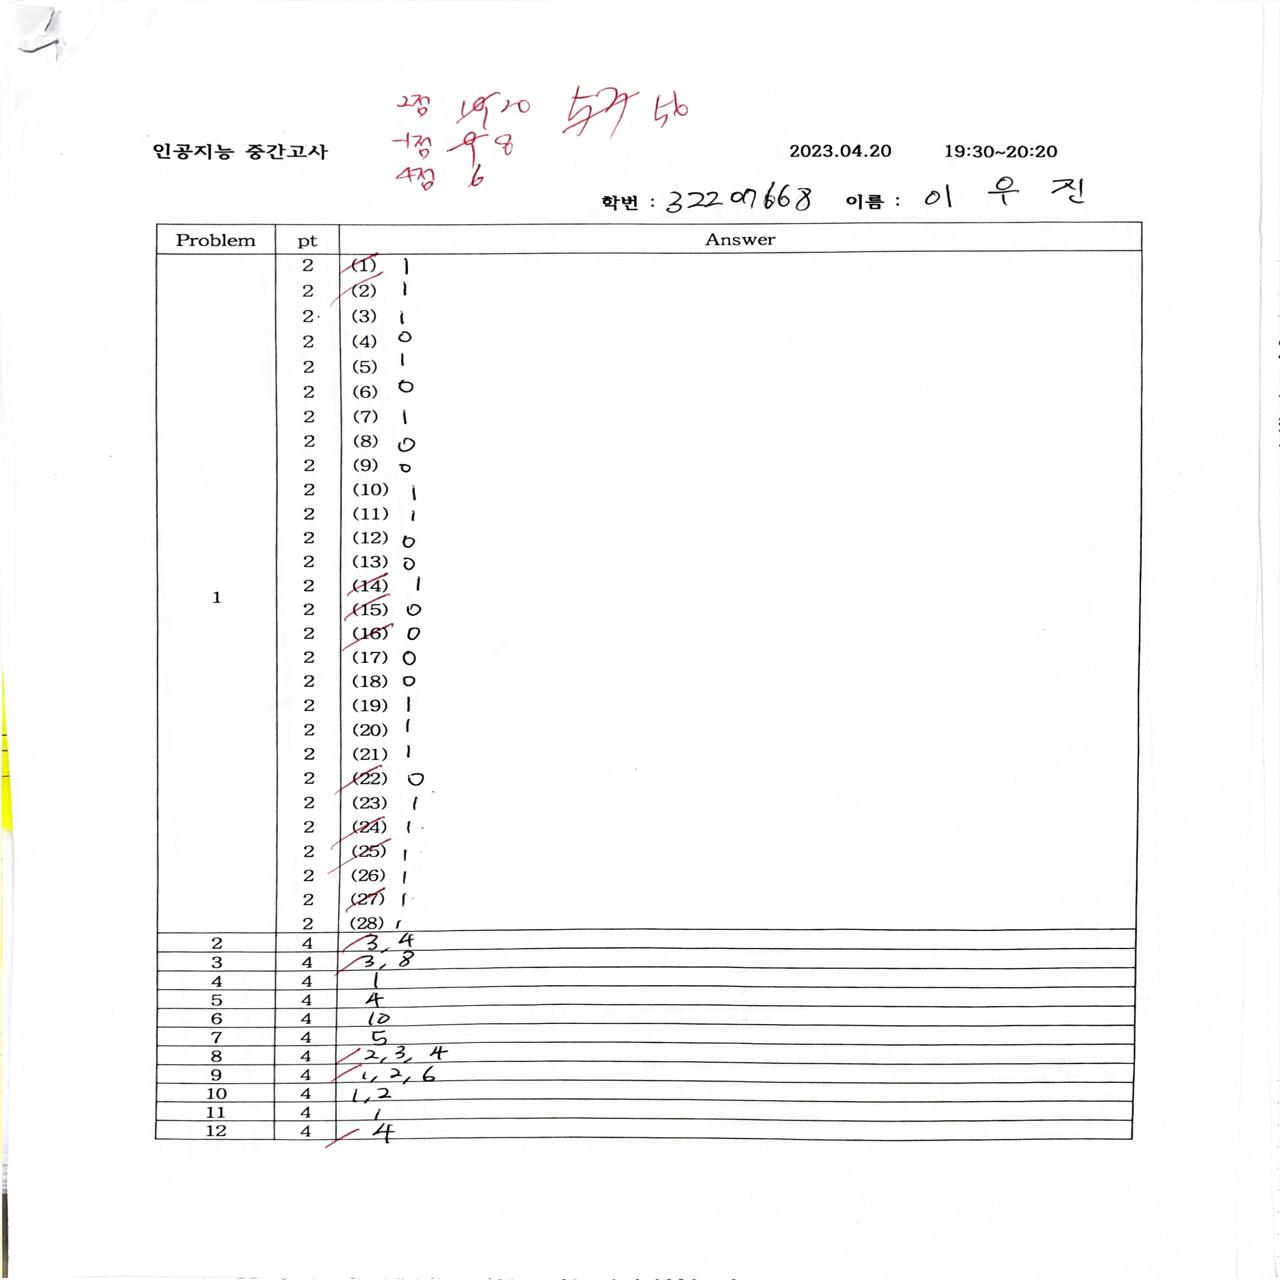 2점 20 56
-1점 8
4점 6
인공지능 중간고사 2023.04.20 19:30~20:20
학번 : 32207668 이름 : 이 우 진
Problem pt Answer
2 (1) 1
2 (2) 1
2 (3) 1
2 (4) 0
2 (5) 1
2 (6) 0
2 (7) 1
2 (8) 0
2 (9) 0
2 (10) 1
2 (11) 1
2 (12) 0
2 (13) 0
2 (14) 1
1 2 (15) 0
2 (16) 0
2 (17) 0
2 (18) 0
2 (19) 1
2 (20) 1
2 (21) 1
2 (22) 0
2 (23) 1
2 (24) 1
2 (25) 1
2 (26) 1
2 (27) 1
2 (28) 1
2 4 3, 4
3 4 3, 8
4 4 1
5 4 4
6 4 10
7 4 5
8 4 2, 3, 4
9 4 1, 2, 6
10 4 1, 2
11 4 1
12 4 4